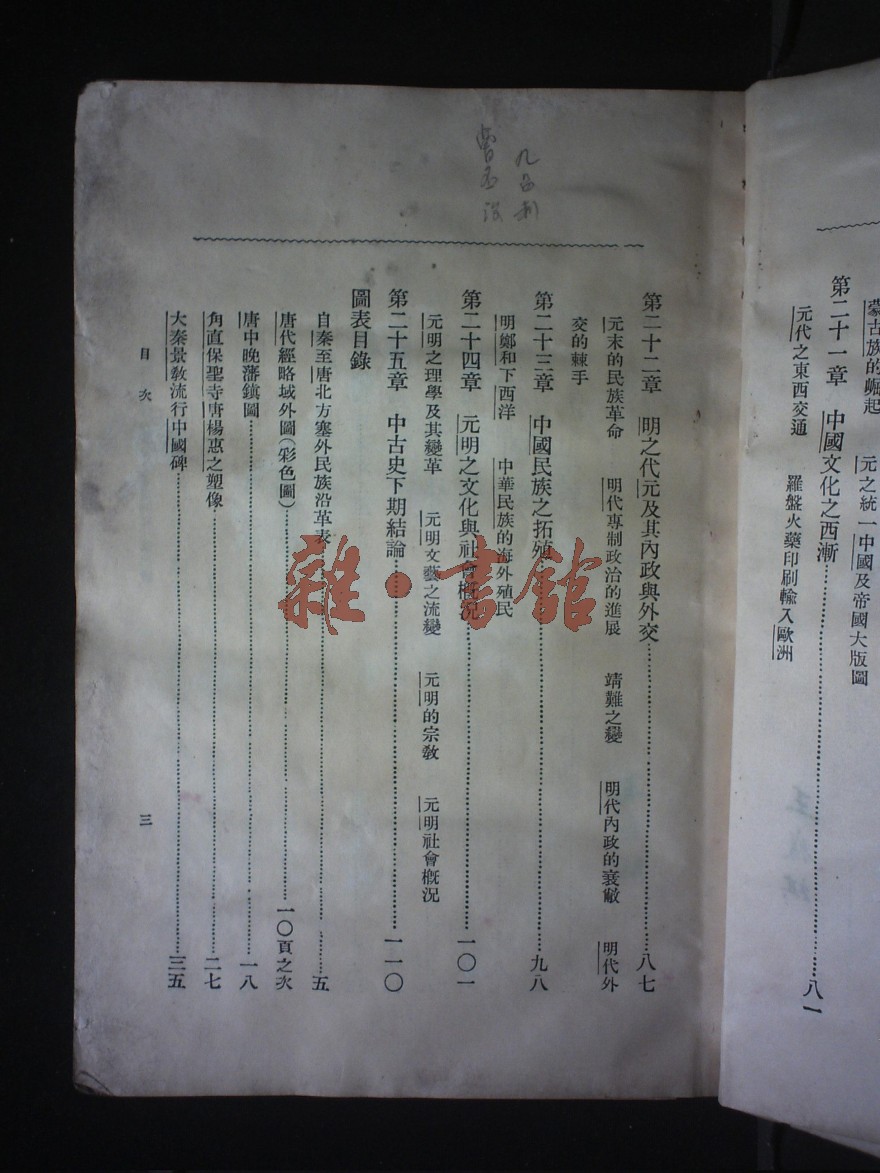 蒙古族的崛起　元之統一中國及帝國大版圖
第二十一章　中國文化之西漸…………八一
元代之東西交通　羅盤火藥印刷輸入歐洲
第二十二章　明之代元及其內政與外交…………八七
元末的民族革命　明代專制政治的進展　靖難之變　明代內政的衰敝　明代外
交的棘手
第二十三章　中國民族之拓殖…………九八
明鄭和下西洋　中華民族的海外殖民
第二十四章　元明之文化與社會概況…………一〇一
元明之理學及其變革　元明文藝之流變　元明的宗教　元明社會概況
第二十五章　中古史下期結論…………一一〇
圖表目錄
自秦至唐北方塞外民族沿革表…………五
唐代經略域外圖(彩色圖)…………一〇頁之次
唐中晚藩鎮圖…………一八
角直保聖寺唐楊惠之塑像…………二七
大秦景教流行中國碑…………三五
目次
三
雜·書館